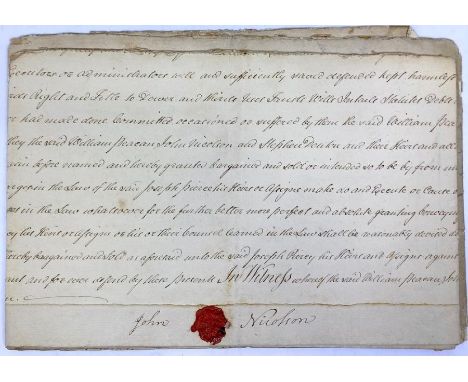 Executors or administrators well and sufficiently saved defended kept harmless
Right and Title to Dower and thirds Uses Trusts Wills Intails Statutes Debts
or had made done Committed occasioned or suffered by them the said William
they the said William John Nicolson and Stephen and their Heirs and all
before named and hereby granted bargained and sold or intended so to be by from
in the Law of the said Joseph his Heirs or Assigns make do and Execute or Cause
in the Law whatsoever for the further better more perfect and absolute granting
his Heirs or Assigns or his or their Councel learned in the Law shall be reasonably devised
hereby bargained and sold as aforesaid unto the said Joseph his Heirs and Assigns against
and for ever defend by these presents In Witness whereof the said William
John Nicolson